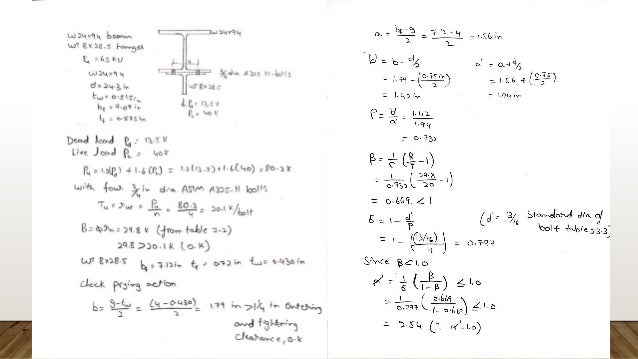 W24x94 beam
WT 8x28.5 hanger
Fu = 65 ksi
W24x94
d = 24.3 in
tw = 0.515 in
bf = 9.07 in
tf = 0.875 in
W24x94
3/4 dia A325 N-bolts
WT 8x28.5
↓ PD = 13.5 K
PL = 40K
Dead load Pd = 13.5 K
Live load PL = 40K
Pu = 1.2(PD) + 1.6(PL) = 1.2(13.5)+1.6(40) = 80.2K
with four 3/4 in dia ASTM A325-N bolts
Tu = rut = Pu/n = 80.2/4 = 20.1 K/bolt
B = φrn = 29.8 K (from table 7-2)
29.8 > 20.1 K (O.K)
WT 8x28.5 bf = 7.12 in tf = 0.72 in tw = 0.430 in
check prying action
b = g-tw/2 = (4-0.430)/2 = 1.79 in > 1 1/4 in entering
and tightning
clearance, O.K
a = bf-g/2 = 7.12-4/2 = 1.56 in
b' = b - d/2 a' = a+d/2
= 1.79 - (0.75in/2) = 1.56 + (0.75/2)
= 1.42 in = 1.94 in
P = b'/a' = 1.42/1.94
= 0.732
β = 1/P (B/T -1)
= 1/0.732 (29.8/20 -1)
= 0.669 < 1
δ = 1 - d'/P (d' = 13/16 standard dia of
bolt table J3.3)
= 1 - (13/16)/4 = 0.797
Since β ≤ 1.0
α' = 1/δ (β/1-β) ≤ 1.0
= 1/0.797 (0.669/1-0.669) ≤ 1.0
= 2.54 (∴ α' = 1.0)